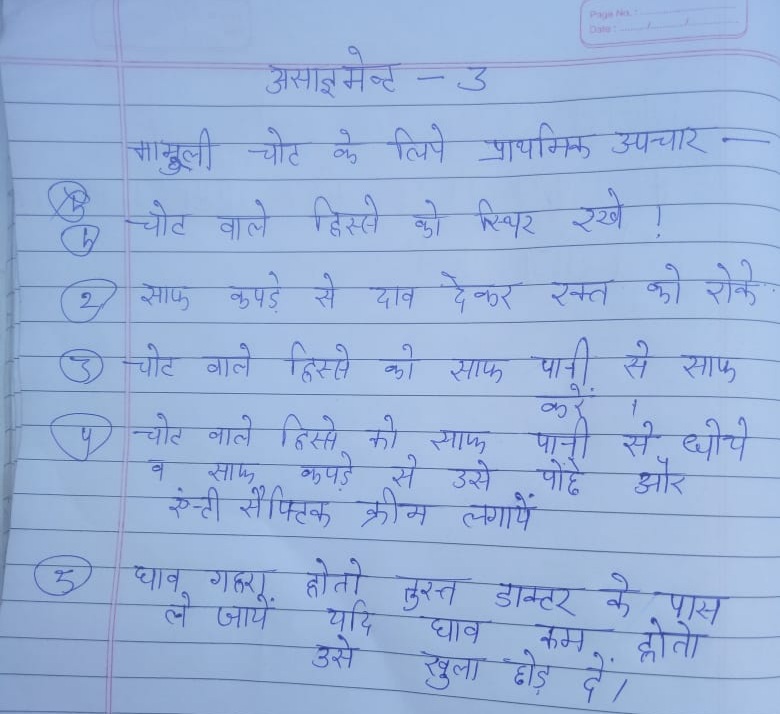 Page No. :
Date :
असाइमेन्ट - 3
मामुली चोट के लिये प्राथमिक उपचार -
चोट वाले हिस्से को स्थिर रखे !
2 साफ कपड़े से दाव देकर रक्त को रोके
3 चोट वाले हिस्से को साफ पानी से साफ
करें ।
4 चोट वाले हिस्से को साफ पानी से धोये
व साफ कपड़े से उसे पोंछे और
एंन्टी सैफ्टिक क्रीम लगायें
5 घाव गहरा होतो तुरन्त डाक्टर के पास
ले जायें यदि घाव कम होतो
उसे खुला छोड़ दें।